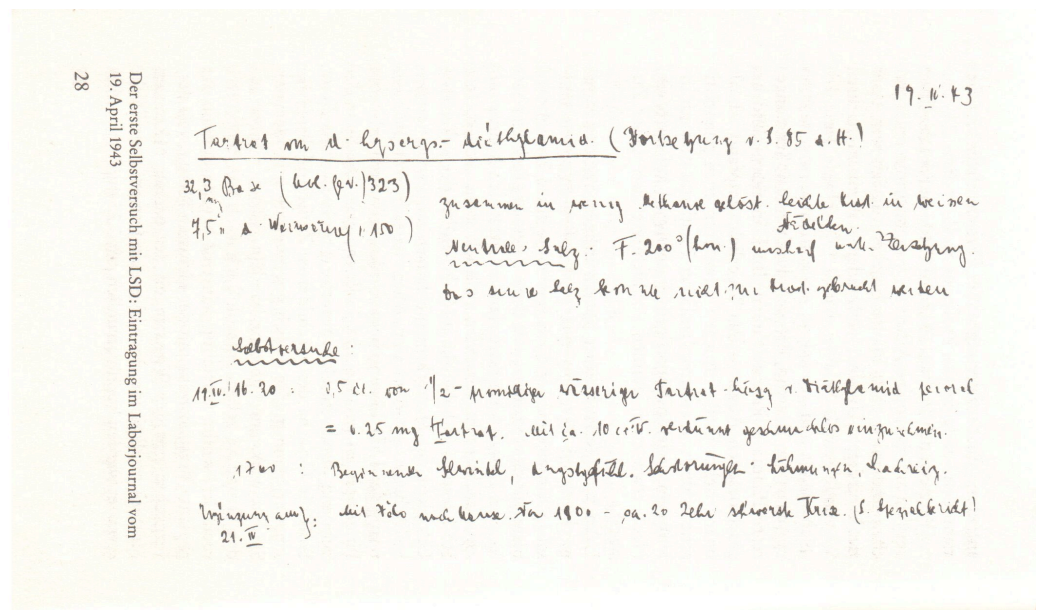 19. IV. 43
Tartrat von d-Lysergs.-diäthylamid. (Fortsetzung v. S. 85 d. H.)
32,3 Base (Mol. Gew. 323)
mg
7,5 " d-Weinsäure ( " 150)
zusammen in wenig Methanol gelöst. Leichte Krist. in weissen
Nädelchen.
Neutrales Salz. F. 200° (korr.) unscharf unt. Zersetzung.
Das saure Salz konnte nicht zur Krist. gebracht werden
Selbstversuche:
19.IV. 16.20: 0,5 cc. von 1/2-promilliger wässeriger Tartrat-Lösg v. Diäthylamid peroral
= 0.25 mg Tartrat. Mit ca. 10 cc W. verdünnt geschmacklos einzunehmen.
1700: Beginnender Schwindel, Angstgefühl. Sehstörungen. Lähmungen, Lachreiz.
Ergänzung am
21.IV: Mit Velo nach Hause. Von 1800 - ca. 20 Uhr schwerste Krise. (S. Spezialbericht)
Der erste Selbstversuch mit LSD: Eintragung im Laborjournal vom
19. April 1943
28